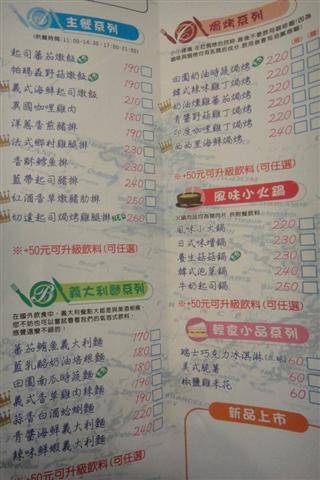 主餐系列
(供餐時間:11:00-14:30、17:00-21:00)
起司蕃茄燉飯 190
帕瑪森野菇燉飯 190
義式海鮮起司燉飯 210
異國咖哩雞肉 180
洋蔥香煎豬排 190
法式鄉村雞腿排 230
香酥鱈魚排 230
藍帶起司豬排 240
紅酒香草燉豬肋排 250
切達起司焗烤雞腿排NEW 260
※+50元可升級飲料(可任選)
義大利麵系列
蕃茄鮪魚義大利麵 170
藍乳酪奶油培根麵 180
田園南瓜時蔬麵 180
義式香草雞肉辣麵 190
蒜香白酒蛤蜊麵 210
青醬海鮮義大利麵 220
辣味鮮蝦義大利麵 240
※+50元可升級飲料(可任選)
焗烤系列
田園奶油時蔬焗烤 220
韓式辣味雞丁焗烤 230
奶油燻雞蕃茄焗烤 210
青醬野菇雞丁焗烤 210
印度咖哩雞丁焗烤 220
西西里海鮮焗烤 240
※+50元可升級飲料(可任選)
風味小火鍋
風味小火鍋 220
日式味噌鍋 230
養生菇菇鍋 230
韓式泡菜鍋 230
牛奶起司鍋 250
※+50元可升級飲料(可任選)
輕食小品系列
瑞士巧克力冰淇淋 60
美式脆薯 60
椒鹽雞米花 60
新品上市